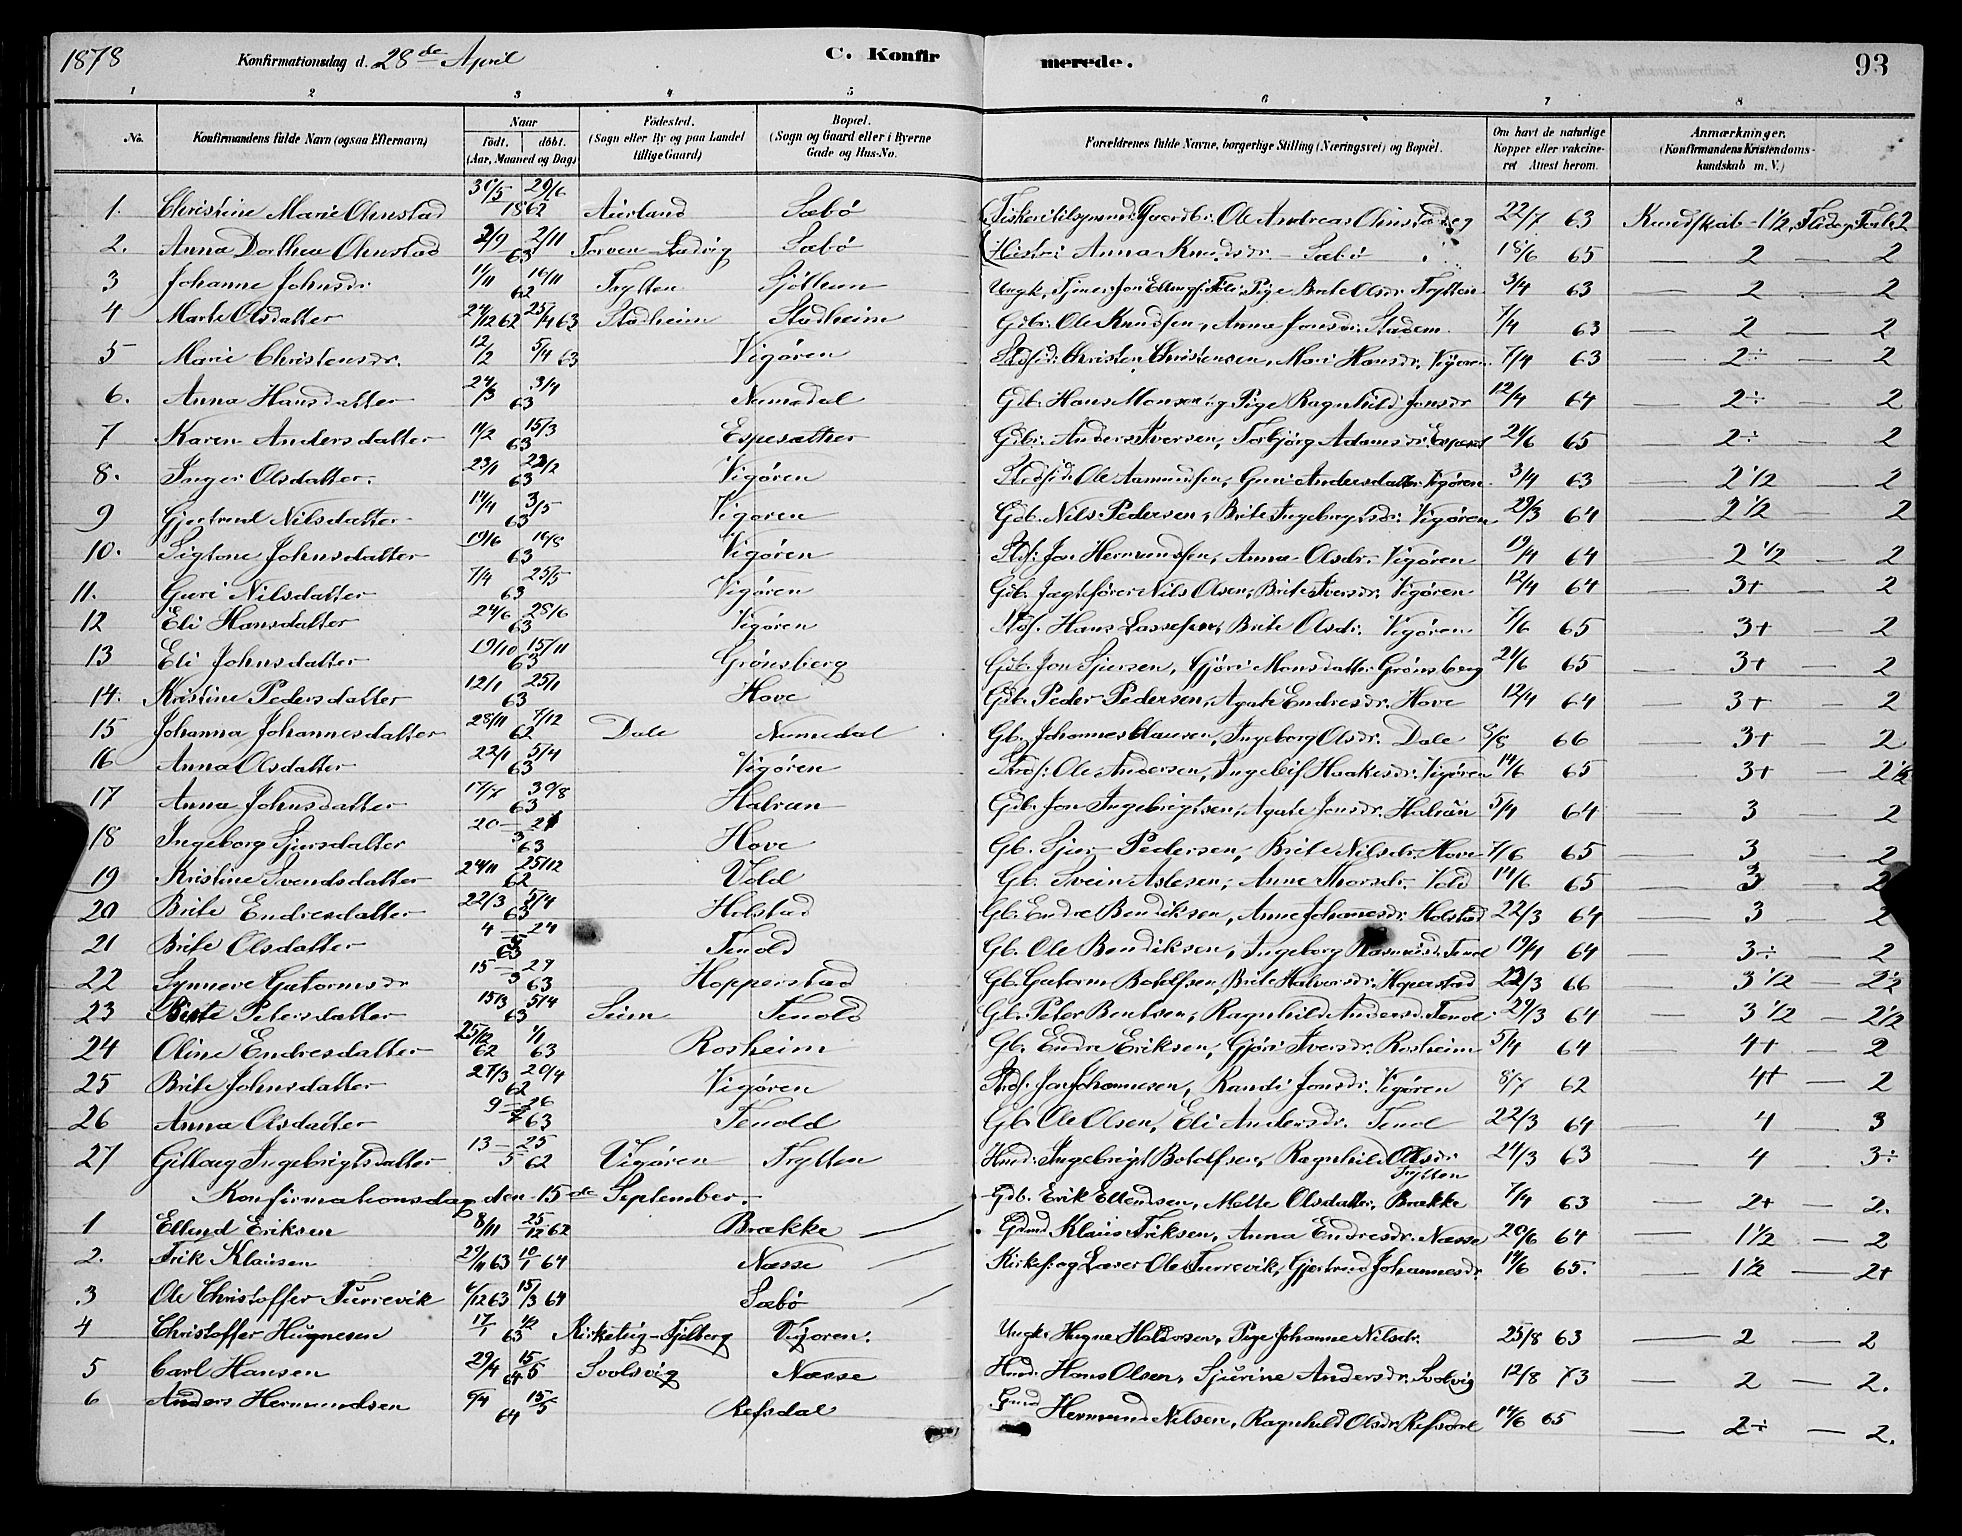 1878 Konfirmationsdag d. 28de April C. Konfirmerede. 93
1 2 3 4 5 6 7 8
No. Konfirmandens fulde Navn (ogsaa Efternavn) Naar født. døbt. (Aar, Maaned og Dag) Fødested. (Sogn eller By og paa Landet tillige Gaard) Bopæl. (Sogn og Gaard eller i Byerne Gade og Hus-No. Forældrenes fulde Navne, borgerlige Stilling (Næringsvei) og Bopæl. Om havt de naturlige Kopper eller vakcineret Attest herom. Anmærkninger. (Konfirmandens Kristendomskundskab m. V.)
1. Christine Marie Ohnstad 29/6 1862 Aurland Sæbö Ole Andreas Ohnstad og 22/7 63 Kundskab - 1 1/2, Flid og 2
2. Anna Dorthea Ohnstad 2/9 2/11 63 Sæbö Anna Knudsdr - Sæbö 18/6 65 — 2 2
3 Johanne Johnsdr 11/11 16/11 62 Trytten Sjöthun Ungk. Pige Brite Olsdr. Trytten 3/4 63 — 2 — 2
4 Marte Olsdatter 24/12 62 25/4 63 Stadheim Stadheim Gdbr. Ole Knudsen, Anna Jonsdr. Stadem 7/4 63 — 2 — 2
5 Marie Christensdr. 12/2 5/4 63 Vigören Christen Christensen, Mari Hansdr. Vigören 7/4 63 — 2÷ — 2
6. Anna Hansdatter 24/3 3/4 63 Numedal Gdb. Hans Monsen og Pige Ragnhild Jonsdr 12/4 64 — 2÷ — 2
7 Karen Andersdatter 11/2 15/3 63 Espesæther Gdbr. Anders Iversen, Torbjörg Adamsdr. 24/6 65 — 2÷ — 2
8. Inger Olsdatter. 23/1 22/2 63 Vigören Ole Aamundsen, Guri Andersdatter Vigören 3/4 63 — 2 1/2 — 2
9 Gjertrud Nilsdatter 14/4 3/5 63 Vigören Gdb. Nils Pedersen, Brite Ingebrigtsdr. Vigören 29/3 64 — 2 1/2 — 2
10. Sigtone Johnsdatter 19/6 16/8 63 Vigören Jon Hermundsen, Anna Olsdr. Vigören 19/4 64 — 2 1/2 — 2
11. Guri Nilsdatter 7/4 25/5 63 Vigören Gdb. Jægtfører Nils Olsen, Brite Iversdr. Vigören 12/4 64 — 3+ — 2
12 Eli Hansdatter 24/6 28/6 63 Vigören Hans Lassesen, Brite Olsdr. Vigören 7/6 65 — 3+ — 2
13 Eli Johnsdatter 19/10 15/11 63 Grönsberg Gdb. Jon Sjursen, Gjöri Monsdatter Grönsberg 21/6 65 — 3+ — 2
14. Kristine Pedersdatter 12/1 25/1 63 Hove Gdb. Peder Pedersen, Agate Endresdr. Hove 12/4 64 — 3+ — 2
15 Johanna Johannesdatter 28/11 7/12 62 Dale Numedal Gb. Johannes Clausen, Ingeborg Olsdr. Dale 66 — 3+ — 2
16 Anna Olsdatter 22/1 5/4 63 Vigören Ole Andersen, Ingeleif Haakesdr. Vigören 14/6 65 — 3+ — 2 1/2
17 Anna Johnsdatter 17/7 30/8 63 Halvæn Gdb. Jon Ingebrigtsen, Agate Jonsdr. Halvæn 5/4 64 — 3 2
18 Ingeborg Sjursdatter 20 — 21 3 63 Hove Gb. Sjur Pedersen, Brite Nilsdr. Hove 7/6 65 — 3 — 2
19 Kristine Svendsdatter 24/11 25/12 62 Vold Gb. Svein Aslesen, Anne Thorsdr. Vold 14/6 65 — 3 2
20 Brite Endresdatter 22/3 5/4 63 Holstad Gb. Endre Bendiksen, Anne Johannesdr. Holstad 22/3 64 — 3 — 2
21 Brite Olsdatter 4 — 24 63 Tenold Gb. Ole Bendiksen, Ingeborg Rasmusdr. Tenol 19/4 64 — 3÷ — 2
22 Synneve Gutormsdr 15 — 29 3 63 Hopperstad Gb. Gutorm Botolfsen, Brite Halvorsdr. Hoperstad 22/3 66 — 3 1/2 — 2 1/2
23 Brite Petersdatter 15/3 5/4 63 Seim Tenold Gb. Peter Bentsen, Ragnhild Andersd. Tenol 29/3 64 — 3 1/2 — 2 1/2
24 Oline Endresdatter 25/12 62 1/1 63 Rosheim Gb. Endre Eriksen, Gjöri Iversdr. Rosheim 5/4 64 — 4+ — 2
25 Brite Johnsdatter 27/3 20/4 62 Vigören Jon Johannesen, Randi Jonsdr. Vigören 8/7 62 — 4+ — 2
26 Anna Olsdatter 9 — 26 63 Tenold Gb. Ole Olsen, Eli Andersdr. Tenol 22/3 64 — 4 3
27 Gitlaug Ingebrigtsdatter 13 — 25 5 62 Vigören Trytten Husmd. Ingebrigt Botolfsen, Ragnhild Olsdr. Trytten 24/3 63 — 4 — 3÷
Konfirmationsdag den 15de September.
1 Ellend Eriksen 8/11 25/12 62 Brække Gdb. Erik Ellendsen, Mette Olsdatter, Brække 7/4 63 — 2+ — 2.
2. Erik Klausen 27/11 63 10/1 64 Næsse Gmd Klaus Eriksen, Anna Endresdr. Næsse 20/6 64 — 1 1/2 — 2
3 Ole Christoffer Turrevik 6/12 63 15/3 64 Sæbö Kirkes. og Lærer Ole Turrevik, Gjertrud Johannesdr. 14/6 65. — 1 1/2 — 2+
4 Christoffer Hugnesen 17/1 1/2 63 Kirketeig - Fjelberg Vigören. Ungk. Hugne Haldorsen, Pige Johanne Nilsdr. 25/8 63 — 2 — 2
5 Carl Hansen 29/4 15/5 64 Svolsvig Næsse Husmd. Hans Olsen, Sjurine Andersdr. Svolvig 12/8 73 — 2 — 2.
6 Anders Hermundsen 9/4 15/5 64 Refsdal Gmd Hermund Nilsen, Ragnhild Olsdr. Refsdal 14/6 65 — 2÷ — 2.